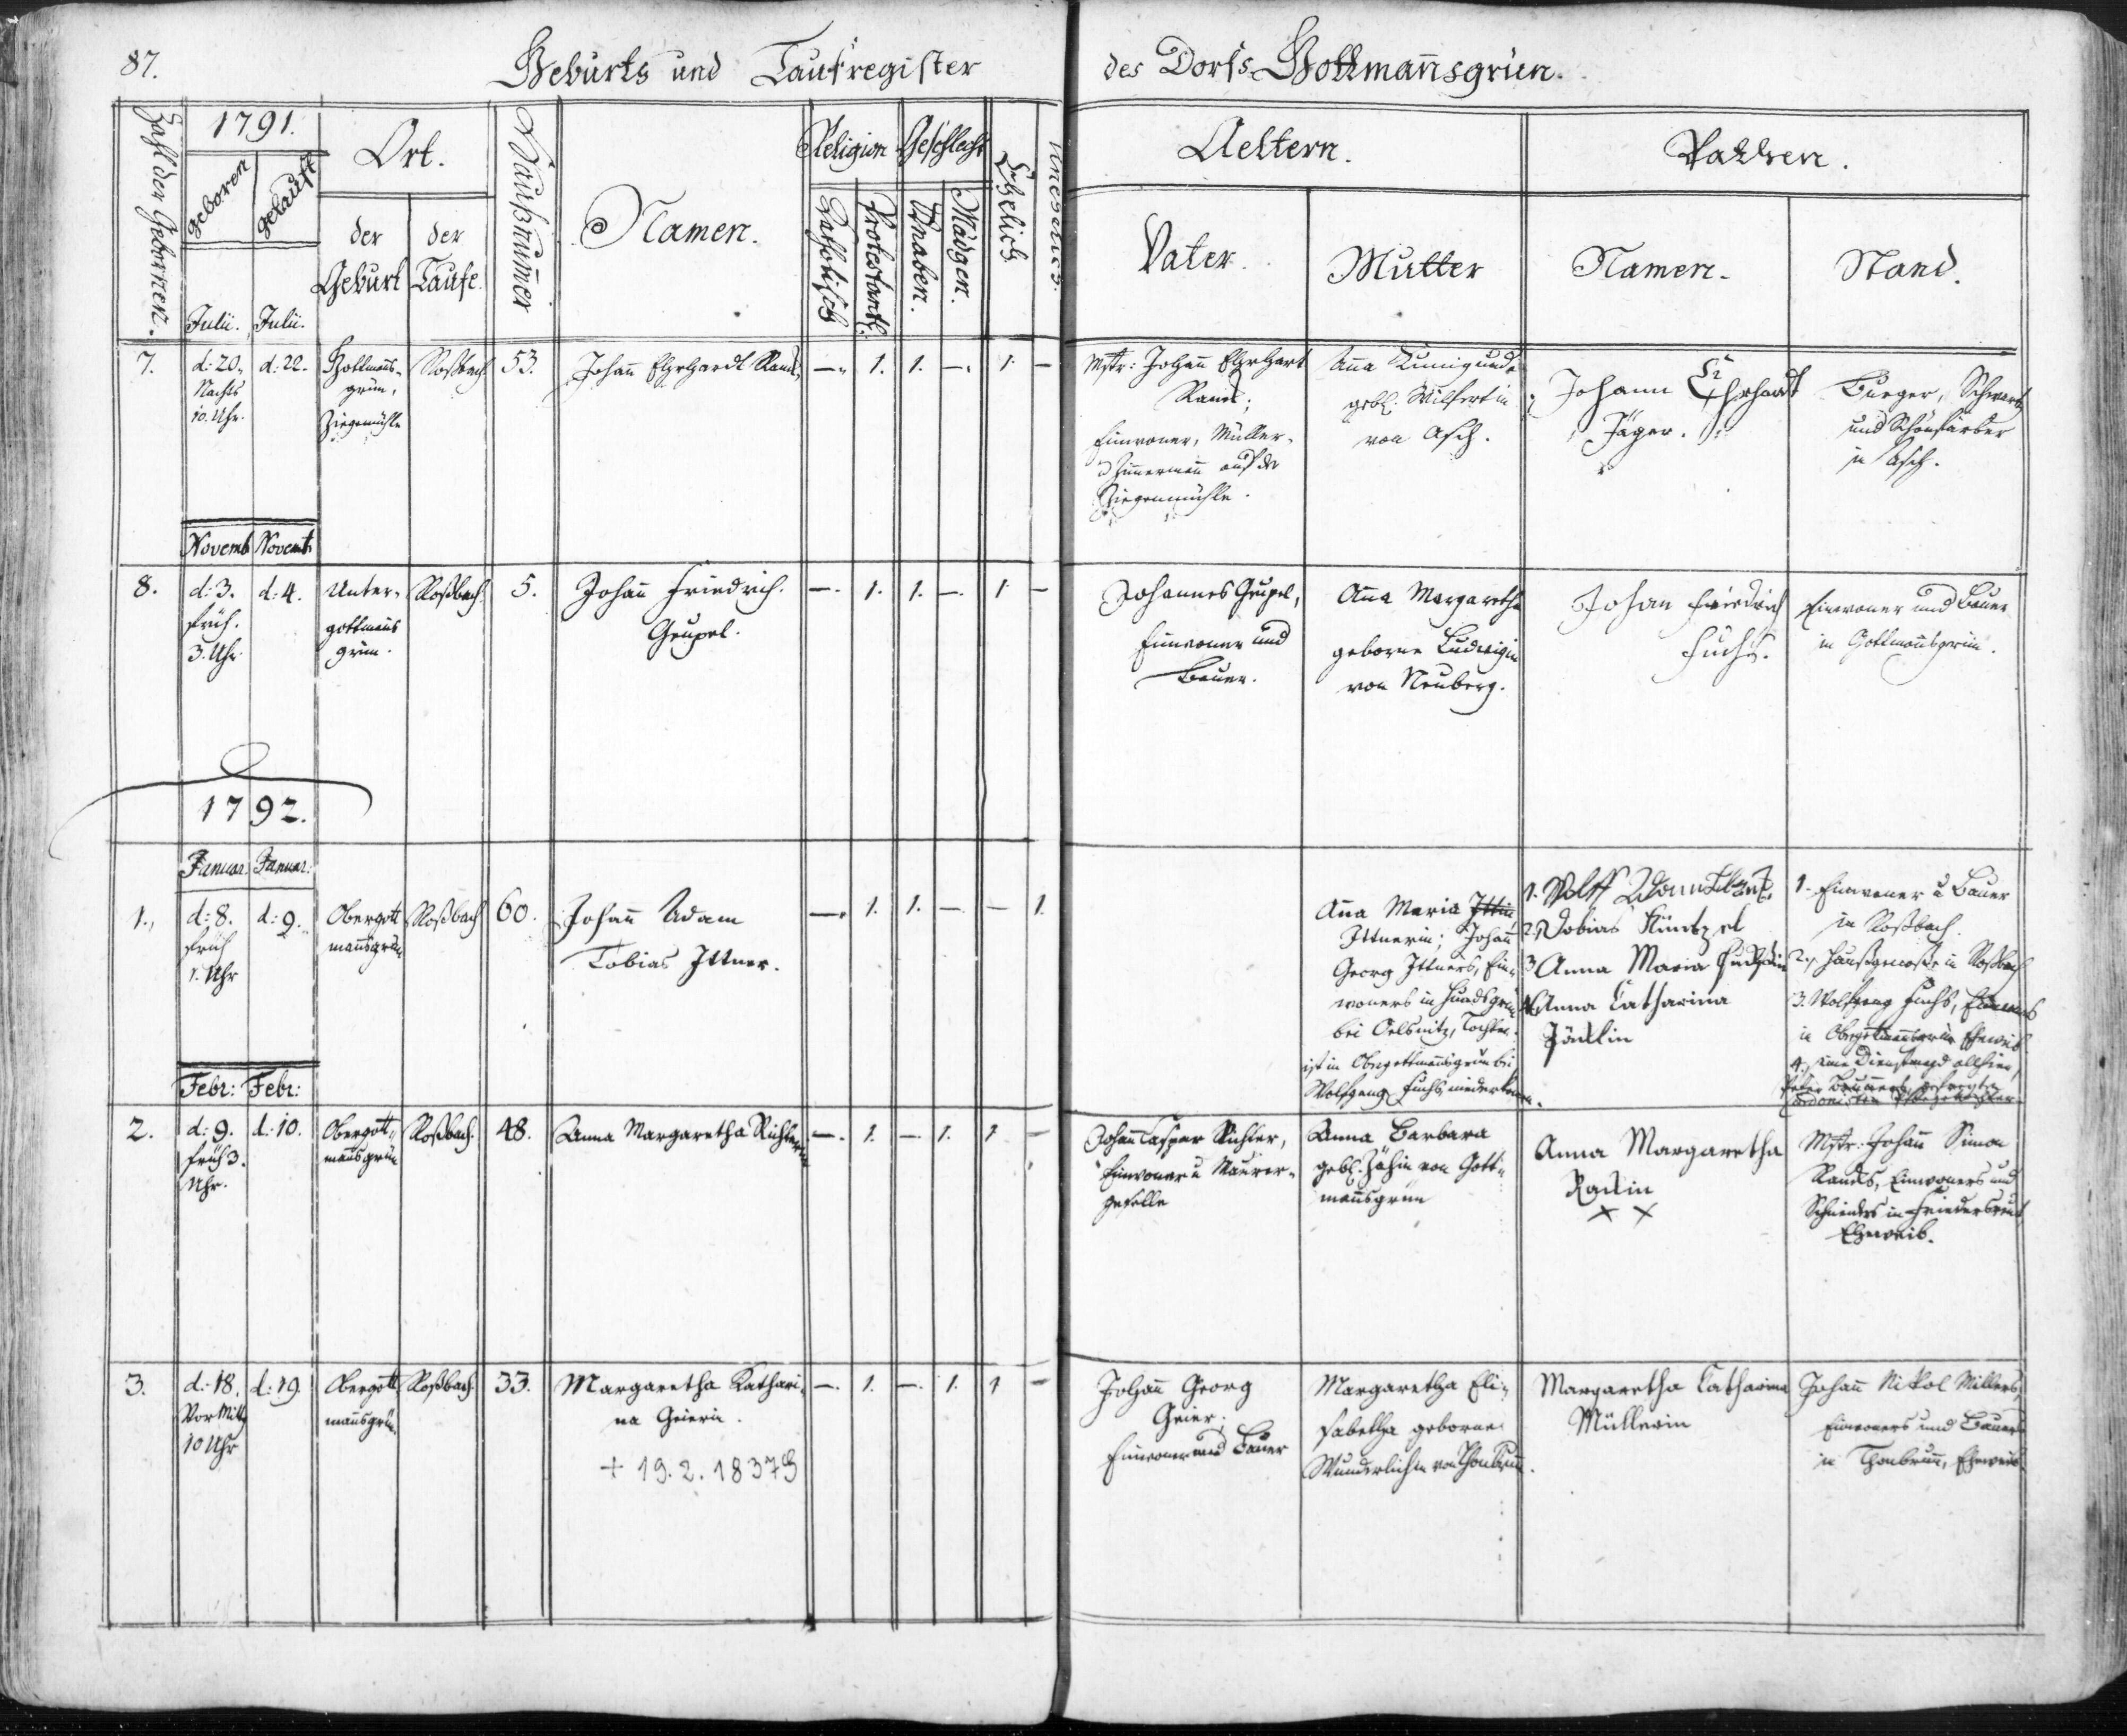 87.
Geburts und Taufregister des Dorfs Gottmañsgrün.
Zahl der Gebornen.
1791.
geboren
getauft
Julii. Julii.
Ort.
der Geburt
der Taufe.
Haußnum̄er
Namen.
Religion
Katholisch
Protestantl.
Geschlecht
Knaben.
Mädgen.
Ehelich
Unehelich.
Aeltern.
Vater.
Mutter
Pathen.
Namen.
Stand.
7.
d: 20.
Nachts
10. Uhr.
d: 22.
Gottmañs-
grün,
Ziegenmühle
Roßbach.
53.
Johañ Ehrhardt
— 1. 1. — 1. —
Mstr: Johañ Ehrhart
Einwoner, Müller-
u Zim̄ermañ auf der
Ziegenmühle.
Aña Kunigunda
gebl. Wilfertin
von Asch.
Johann Ehrhardt
Jäger.
Bürger, Schwarz
und Schönfärber
in Asch.
Novemb Novemb
8.
d: 3.
früh.
3. Uhr
d: 4.
Unter-
gottmañs
grün.
Roßbach.
5.
Johañ Friedrich.
Geupel.
— 1. 1. — 1 —
Johannes Geupel,
Einwoner und
Bauer.
Aña Margaretha
geborne Ludwigin
von Neuberg.
Johan Friedrich
Fuchs.
Einwoner und Bauer
in Gottmañsgrün.
1792.
Januar: Januar:
1.
d: 8.
früh
1. Uhr
d: 9.
Obergott
mañsgrün
Roßbach
60.
Johañ Adam
Tobias Ittner.
— 1. 1. — — 1.
Aña Maria Ittin
Ittnerin; Johañ
Georg Ittners, Ein-
woners in Hundsgrün
bei Oelsnitz, Tochter.
ist in Obergottmañsgrün bei
Wolfgang Fuchs niederkomen.
1. Wolff
2. Tobias Künzel
3 Anna Maria Fuchsin
4. Anna Catharina
1. Einwoner u Bauer
in Roßbach.
2. Haußgenoße in Roßbach
3. Wolfgang Fuchs, Einwoners
in Obergottmañsgrün Eheweib.
4. eine Dienstmagd allhier,
Febr: Febr:
2.
d: 9.
früh 3.
Uhr.
d: 10.
Obergott-
mañsgrün
Roßbach.
48.
Anna Margaretha Richterin
— 1. — 1. 1 —
Johañ Caspar Richter,
Einwoner u Maurer-
geselle
Anna Barbara
gebl. Zähin von Gott-
mañsgrün
Anna Margaretha
x x
Mstr: Johañ Simon
Einwoners und
Schneiders in Friedersreut
Eheweib.
3.
d: 18.
Vor Mittg
10 Uhr
d: 19.
Obergott
mañsgrün
Roßbach.
33.
Margaretha Kathari-
na Geierin.
+ 19. 2. 1837
— 1. — 1. 1 —
Johañ Georg
Geier;
Einwoner und Bauer
Margaretha Eli-
sabetha geborne
Wunderlichin von Thonbruñ.
Margaretha Catharina
Müllerin
Johañ Nikol Müllers,
Einwoners und Bauers
in Thonbruñ, Eheweib.